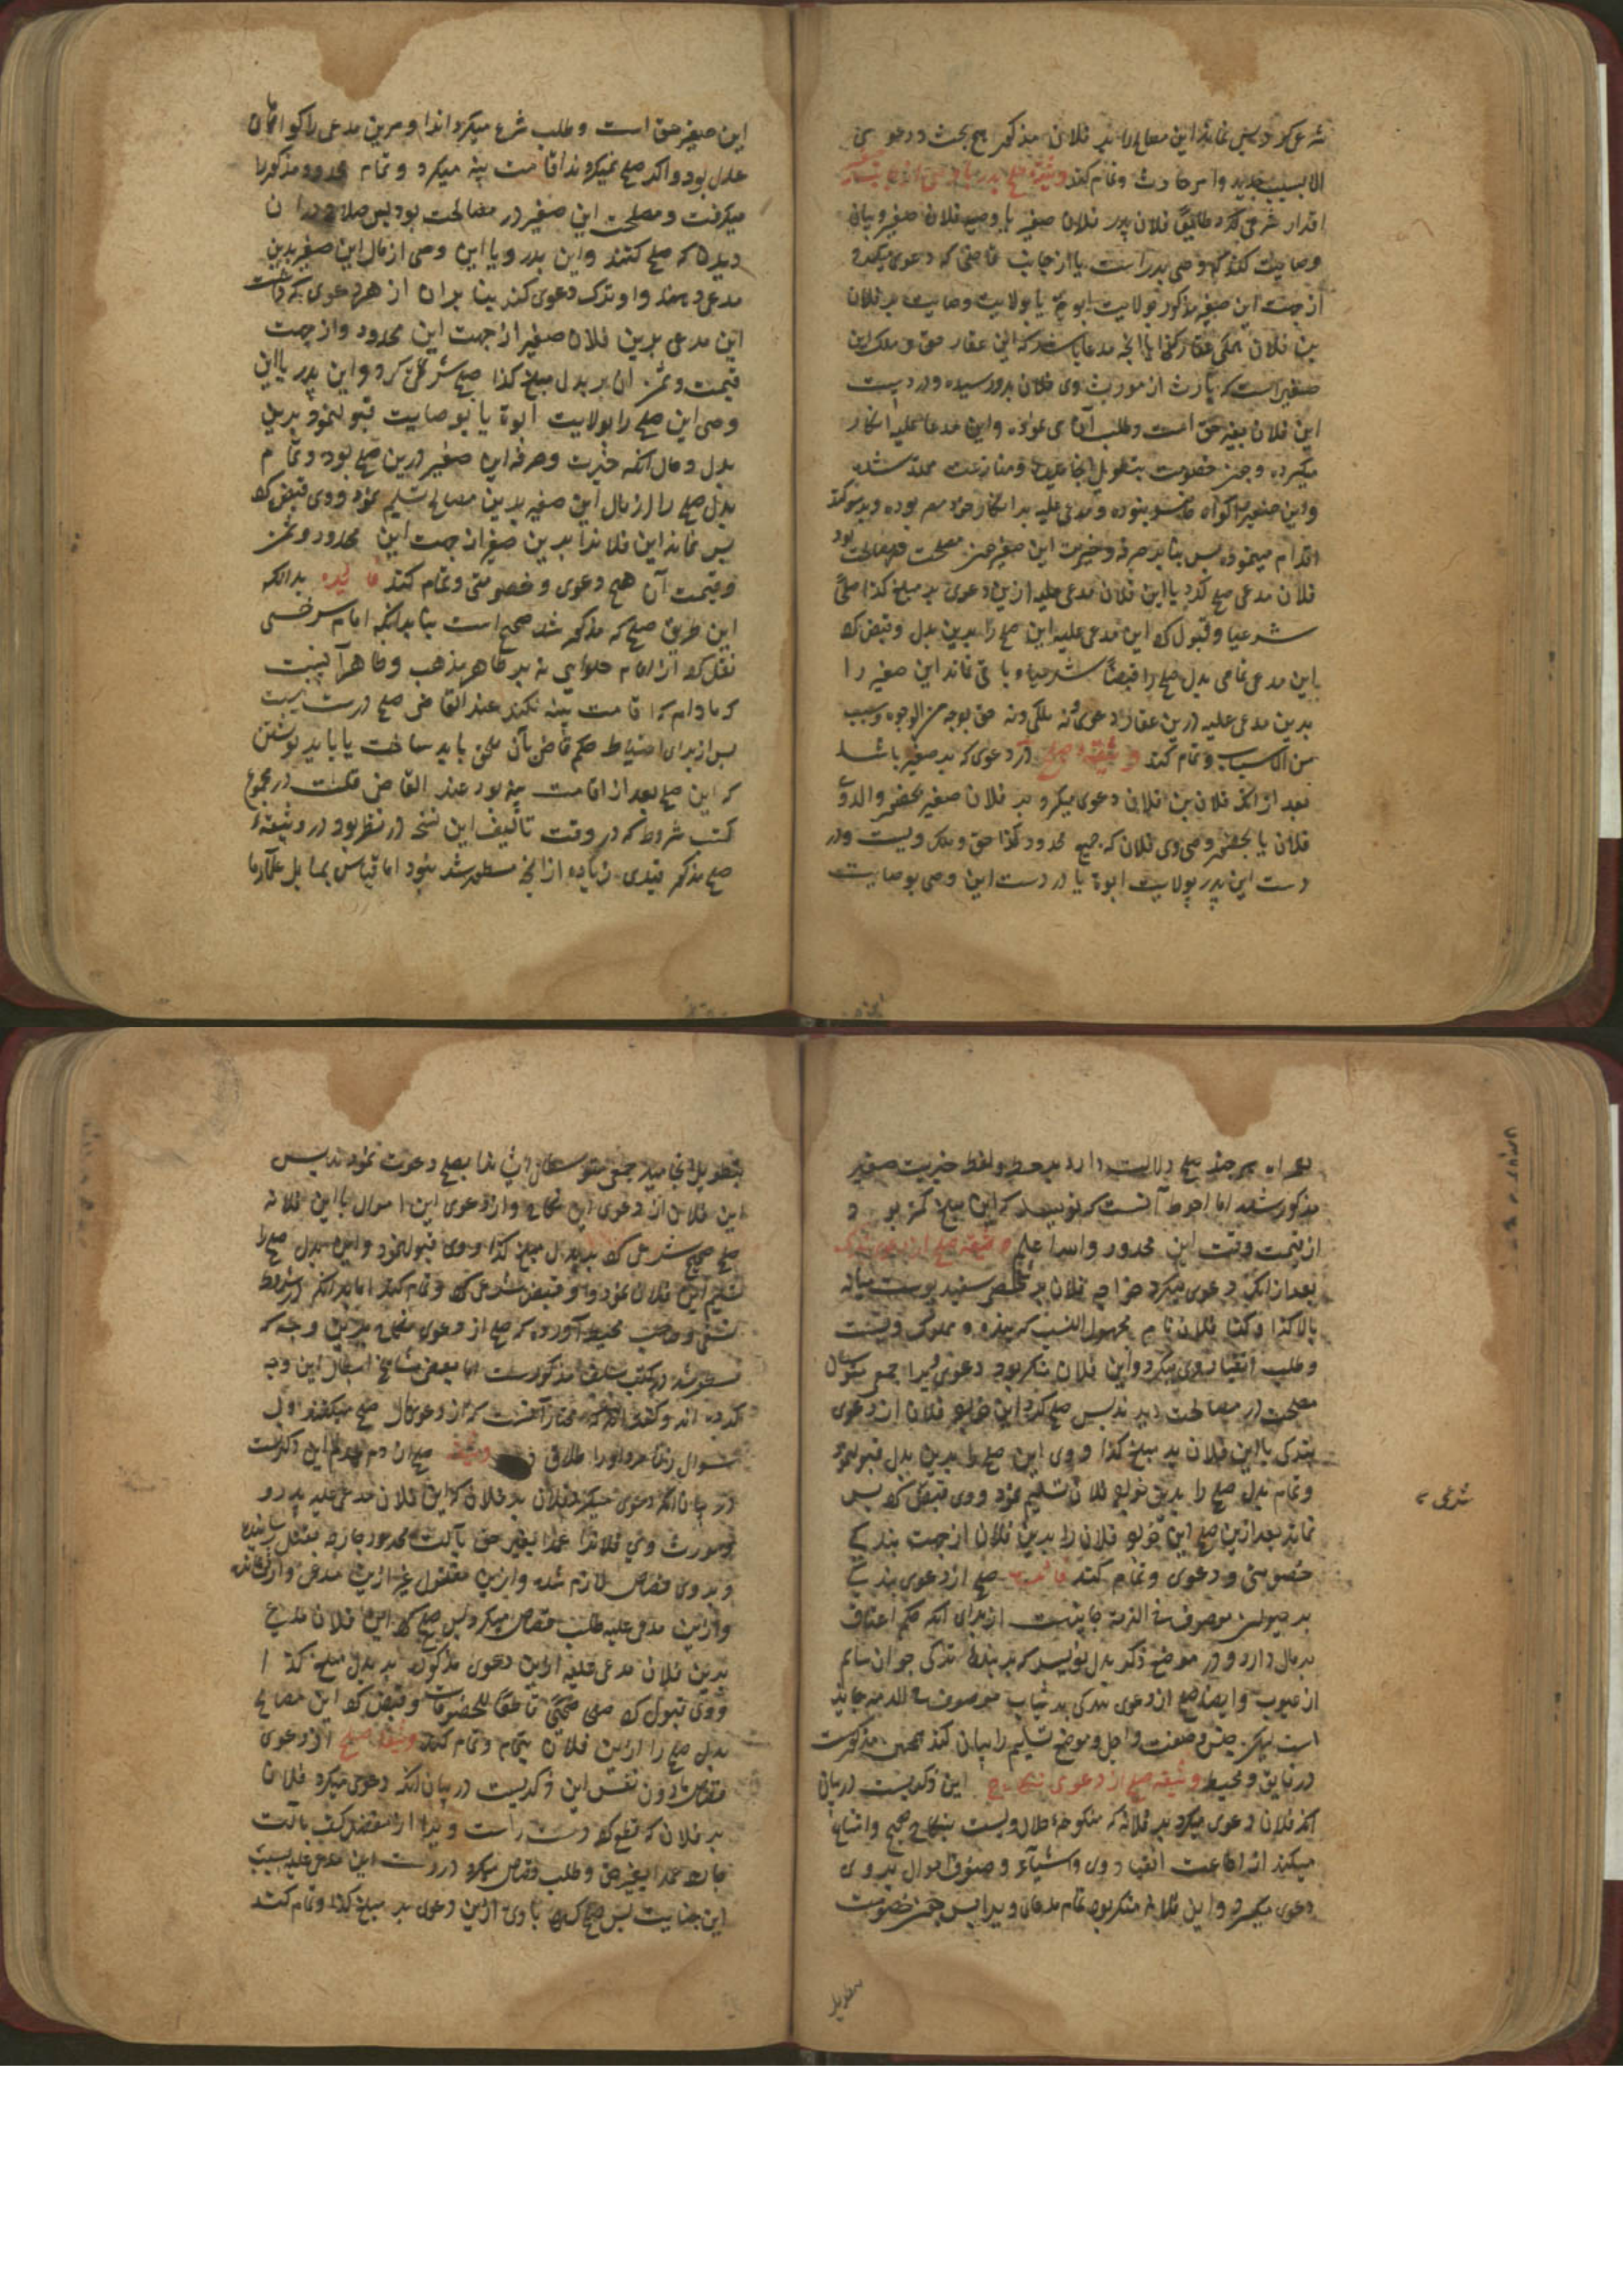 شرعی کرد و پس نماند این مصالح را بر فلان مذکور هیچ بحث و دعوی
الا بسبب جدید و امر حادث و تمام کند وثیقه صلح پدر یا وصی از
اقرار شرعی کرد طایعاً فلان پدر فلان صغیر یا وصی فلان صغیر و بیان
وصایت کند که وصی پدر است یا از جانب قاضی که دعوی میکرد
از جهت این صغیر مذکور بولایت ابوة یا بولایت وصایت بر فلان
بن فلان که این عقار حق و ملک این
صغیر است که بارث از مورث وی فلان بدو رسیده و در دست
این فلان بغیر حق است و طلب آن می نمود و این مدعا علیه انکار
میکرد و چون خصومت بتطویل انجامید و منازعت
و این صغیر را گواه نبوده و مدعی علیه بر انکار خود مصر بوده و بر سوکند
اقدام مینمود پس بنا بر صرفه و خیریت این صغیر چون مصلحت در مصالحت بود
فلان مدعی صلح کرد با این فلان مدعی علیه ازین دعوی بر مبلغ کذا صلحی
شرعیا و قبول کرد این مدعی علیه این صلح را بدین بدل و قبض کرد
این مدعی تمامی بدل صلح را قبضاً شرعیا و باقی نماند این صغیر را
بدین مدعی علیه درین عقار دعوی نه ملکی و نه حق بوجه من الوجوه و سبب
من الاسباب و تمام کند وثیقه صلح در دعوی که بر صغیر باشد
بعد از انکه فلان بن فلان دعوی میکرد بر فلان صغیر بحضور والد وی
فلان یا بحضور وصی وی فلان که جمیع محدود کذا حق و ملک ویست و در
دست این پدر بولایت ابوة یا در دست این وصی بوصایت
این صغیر حق است و طلب شرع میکرد اندا و مرین مدعی را گواهان
عدل بود و اگر صلح نمیکردند اقامت بینه میکرد و تمام محدود مذکور را
میگرفت و مصلحت این صغیر در مصالحت بود پس صلاح در آن
دیدند که صلح کنند و این پدر و یا این وصی از مال این صغیر بدین
مدعی دهند و او ترک دعوی کند بنا بر آن از هر دعوی که داشت
این مدعی بدین فلان صغیر از جهت این محدود و از جهت
قیمت و ثمن آن بر بدل مبلغ کذا صلح شرعی کرد و این پدر یا این
وصی این صلح را بولایت ابوة یا بوصایت قبول نمود بدین
بدل و حال آنکه خیریت و صرفه این صغیر درین صلح بود و تمام
بدل صلح را از مال این صغیر بدین مصالح تسلیم نمود و وی قبض کرد
پس نماند این فلان را بدین صغیر از جهت این محدود و ثمن
و قیمت آن هیچ دعوی و خصومتی و تمام کند فایده بدانکه
این طریق صلح که مذکور شد صحیح است بنا بر آنکه امام سرخسی
نقل کرد از امام حلوایی نه بر ظاهر مذهب و ظاهر آنست
که مادام که اقامت بینه نکند عند القاضی صلح درست نیست
پس از برای احتیاط حکم قاضی بآن ملحق باید ساخت یا باید نوشتن
که این صلح بعد از اقامت بینه بود عند القاضی در مجموع
کتب شروط که در وقت تألیف این نسخه در نظر بود در وثیقهٔ
صلح مذکور قیدی زیاده از آنچه مسطور شد نبود اما قیاس
هر چند صلح دلالت دارد بر حط و لفظ خیریت صغیر
مذکور شده اما احوط آنست که نویسد که این مبلغ کمتر بود
از قیمت وقت این محدود والله اعلم وثیقه صلح از دعوی بندگی
بعد از انکه دعوی میکرد خواجه فلان بر شخص سفید پوست میانه
بالا کذا و کذا فلان نام مجهول النسب که بنده و مملوک ویست
و طلب انقیاد وی میکرد و این فلان منکر بود دعوی ویرا جمع متوسطان
مصلحت در مصالحت دیدند پس صلح کرد این خواجه فلان از دعوی
بندگی با این فلان بر مبلغ کذا و وی این صلح را بدین بدل قبول نمود
و تمام بدل صلح را بدین خواجه فلان تسلیم نمود و وی قبض کرد پس
نماند بعد ازین صلح این خواجه فلان را بدین فلان از جهت بندگی
خصومتی و دعوی و تمام کند فایده صلح از دعوی بندگی
بر حیوان موصوف فی الذمه جایز است از برای آنکه حکم اعتاق
بر مال دارد و در موضع ذکر بدل نویسد که بر بندهٔ ترکی جوان سالم
از عیوب و ایضا صلح از دعوی بندگی بر ثیاب موصوف فی الذمه جایز
است لیکن جنس و صفت و اجل و موضع تسلیم را بیان کند همچنین مذکورست
در و محیط وثیقه صلح از دعوی نکاح این ذکریست در بیان
آنکه فلان دعوی میکرد بر فلانه که منکوحه حلال ویست بنکاح صحیح و امتناع
میکند از اطاعت و انقیاد وی و اشیاء و صنوف اموال بر وی
دعوی میکرد و این فلانه منکر بود تمام مدعای ویرا پس چون خصومت
شرعی
بتطویل
بتطویل انجامید جمعی متوسطان ایشانرا بصلح دعوت نمودند پس
این فلان از دعوی این نکاح و از دعوی این اموال با این فلانه
صلح صحیح شرعی کرد بر بدل مبلغ کذا و وی قبول نمود و این بدل صلح را
تسلیم این فلان نمود و او قبض شرعی کرد و تمام کند اما بدانکه در شروط
نسفی و صاحب محیط آورده که صلح از دعوی نکاح بدین وجه که
مسطور شد در کتب سلف مذکورست اما بعض مشایخ ابطال این وجه
کرده اند و گفته اند که مختار آنست که از دعوی مال صلح میکنند
وثیقه صلح از دم عمد این ذکریست
در بیان آنکه دعوی میکرد فلان بر فلان که این فلان مدعی علیه پدر و
مورث وی فلان را عمدا بغیر حق بآلت محدود جارحه بقتل رسانیده
و بر وی قصاص لازم شده و ازین مقتول غیر ازین مدعی وارث نمانده
و ازین مدعی علیه طلب قصاص میکرد پس صلح کرد این فلان مدعی
بدین فلان مدعی علیه ازین دعوی مذکوره بر بدل مبلغ کذا
و وی قبول کرد صلحی صحیحی قاطعا للخصومات و قبض کرد این مصالح
بدل صلح را ازین فلان بتمام و تمام کند وثیقه صلح از دعوی
قصاص ما دون نفس این ذکریست در بیان آنکه دعوی میکرد فلان
بر فلان که قطع کرد دست راست ویرا از مفصل کف بآلت
جارحه عمدا بغیر حق و طلب قصاص میکرد در دست این مدعی علیه بسبب
این جنایت پس صلح کرد با وی ازین دعوی بر مبلغ کذا و تمام کند